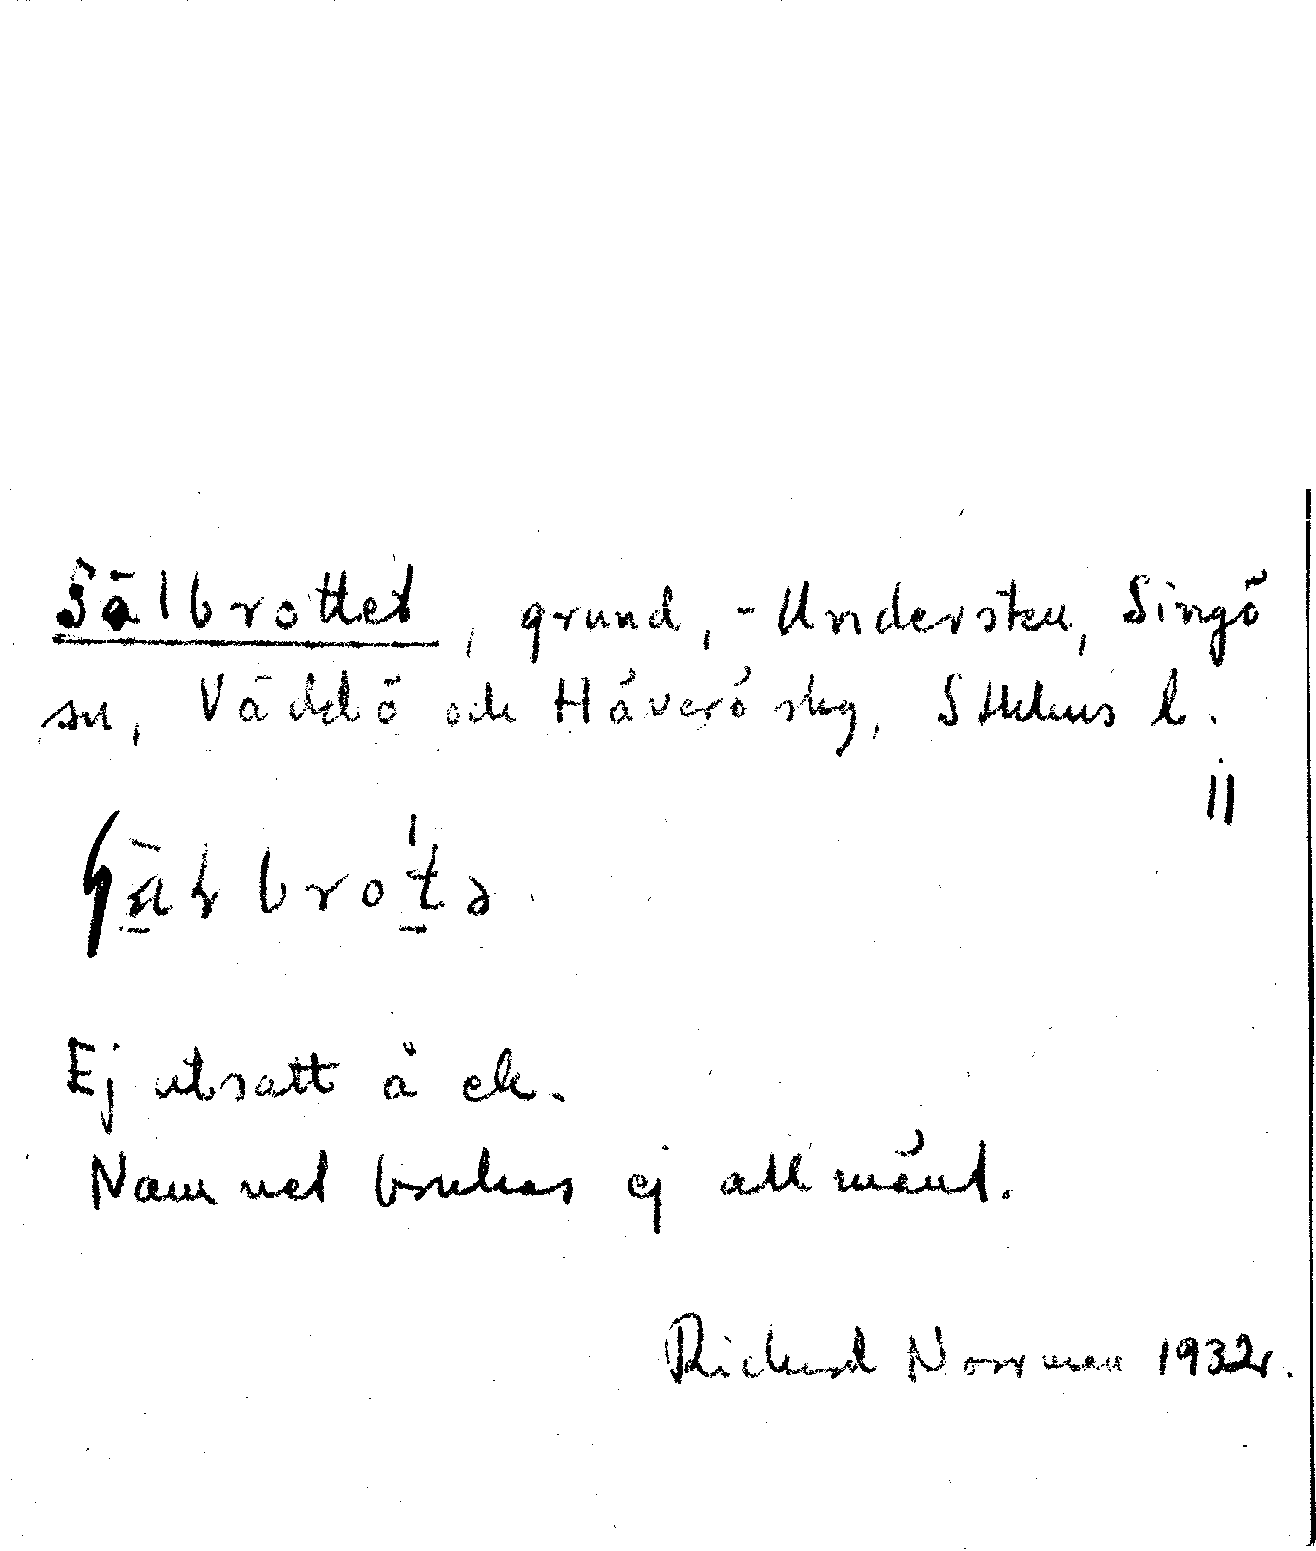 Sälbrottet, grund, - Understen, Singö
sn, Väddö och Häverö skg, Sthlms l.
Ej utsatt å ek.
Namnet brukas ej allmänt.
Richard Norrman 1932.